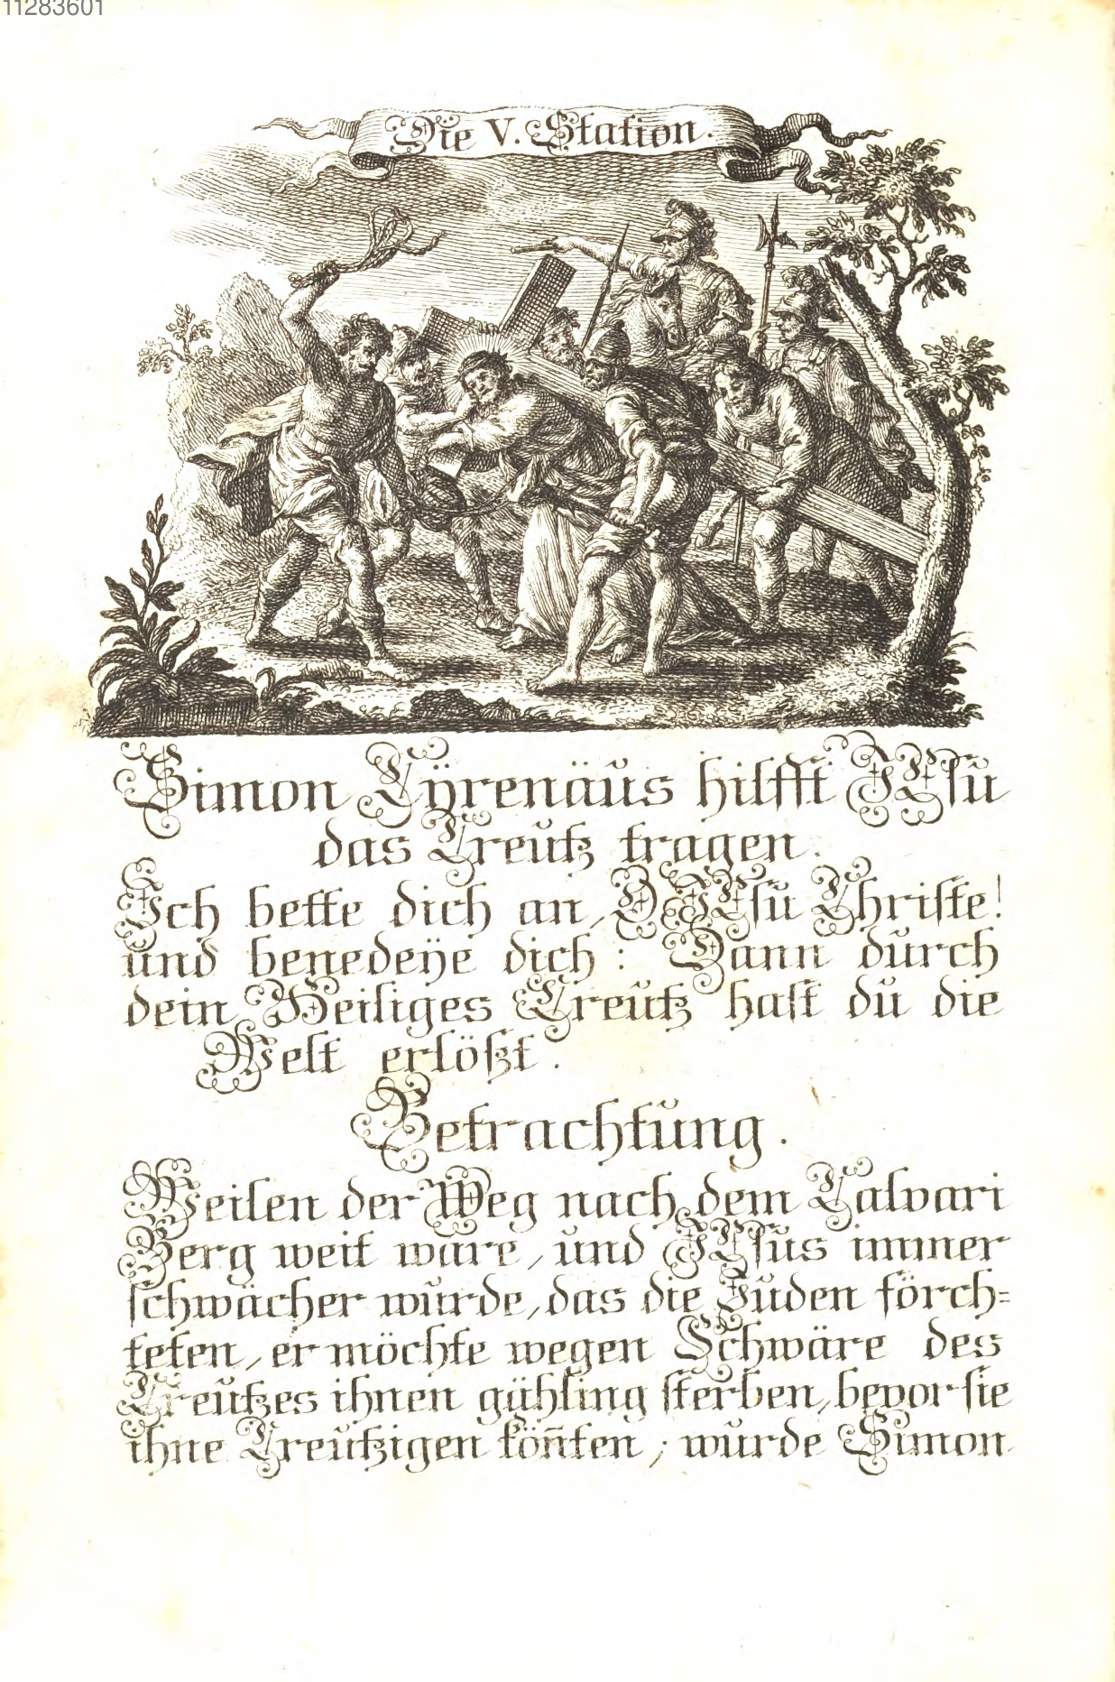 11283601
Die V. Station.
Simon Cÿrenäus hilfft JEsu
das Creutz tragen.
Ich bette dich an, O JEsu Christe!
und benedeÿe dich: Dann durch
dein Heiliges Creutz hast du die
Welt erlößt.
Betrachtung.
Weilen der Weg nach dem Calvari
Berg weit ware, und JEsus immer
schwächer wurde, das die Juden förch=
teten, er möchte wegen Schwäre des
Creutzes ihnen gähling sterben, bevor sie
ihne Creutzigen köñten; wurde Simon